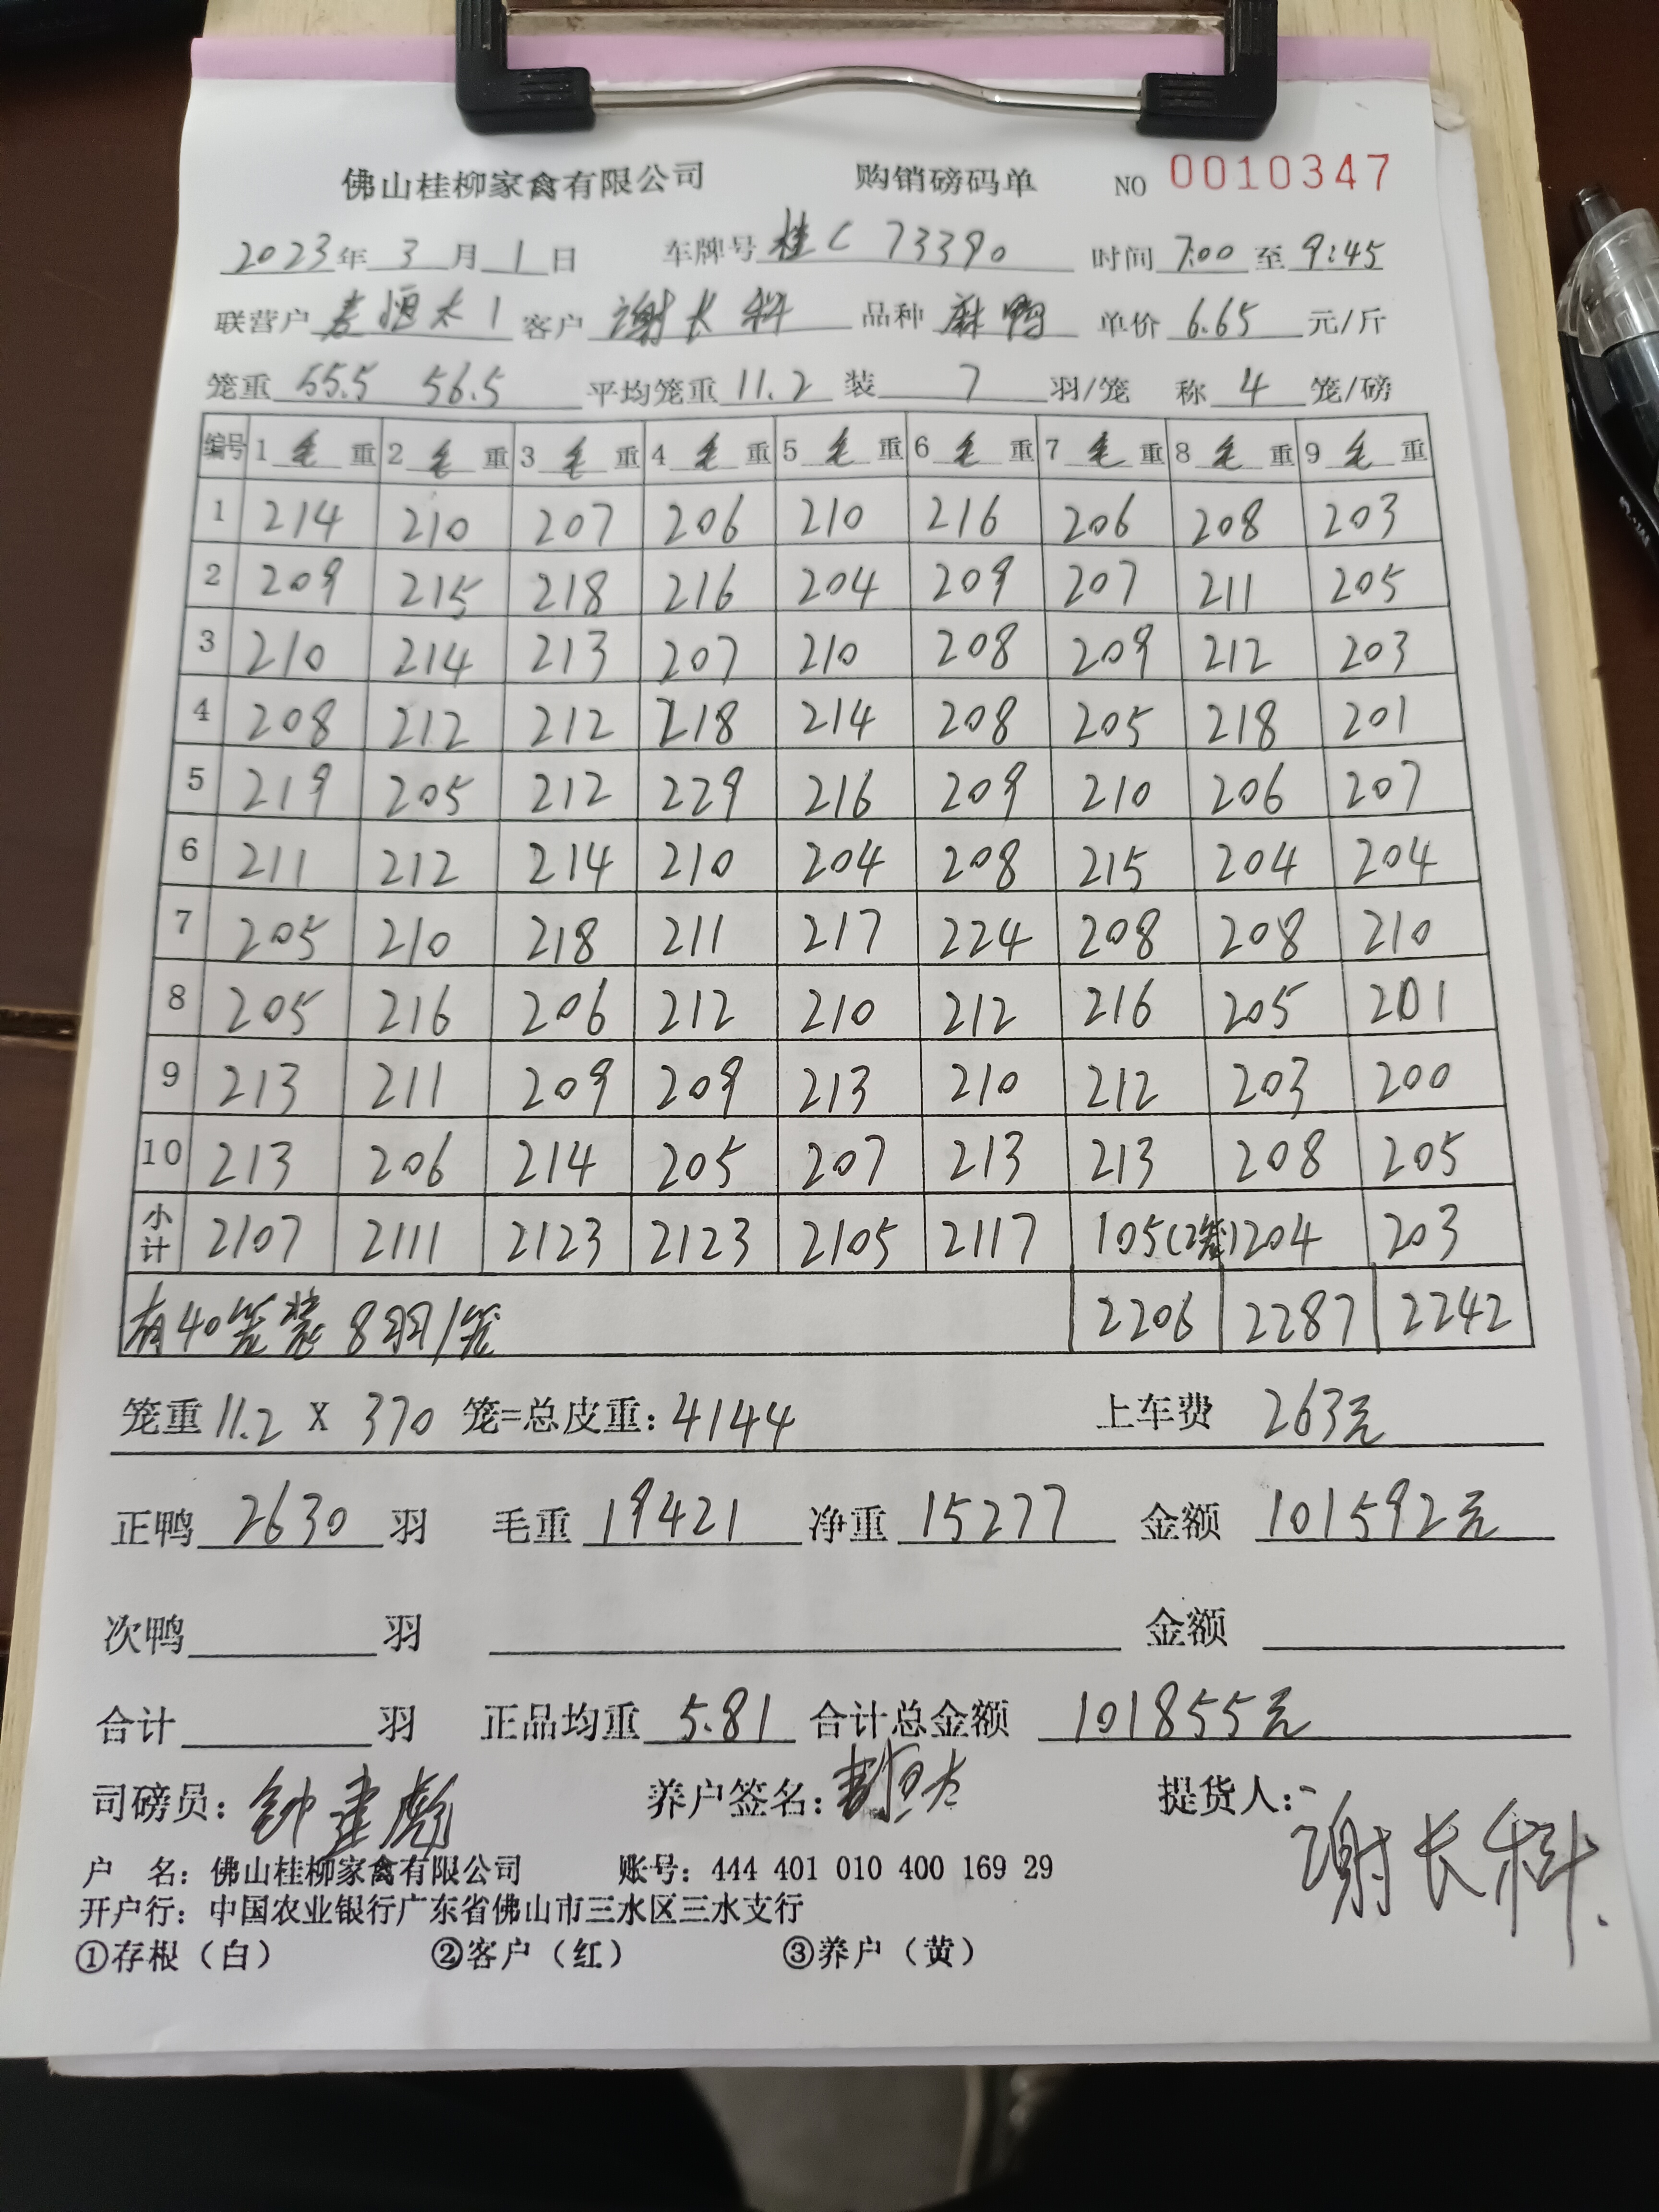 佛山桂柳家禽有限公司 购销磅码单 NO 0010347
2023年 3 月 1 日 车牌号 桂C 73390 时间 7:00 至 9:45
联营户 恒太1 客户 谢长科 品种 麻鸭 单价 6.65 元/斤
笼重 55.5 56.5 平均笼重 11.2 装 7 羽/笼 称 4 笼/磅
编号 1 毛 重 2 毛 重 3 毛 重 4 毛 重 5 毛 重 6 毛 重 7 毛 重 8 毛 重 9 毛 重
1 214 210 207 206 210 216 206 208 203
2 209 215 218 216 204 209 207 211 205
3 210 214 213 207 210 208 209 212 203
4 208 212 212 218 214 208 205 218 201
5 219 205 212 229 216 209 210 206 207
6 211 212 214 210 204 208 215 204 204
7 205 210 218 211 217 224 208 208 210
8 205 216 206 212 210 212 216 205 201
9 213 211 209 209 213 210 212 203 200
10 213 206 214 205 207 213 213 208 205
小计 2107 2111 2123 2123 2105 2117 105(2笼) 204 203
有40笼装 8羽/笼 2206 2287 2242
笼重 11.2 X 370 笼=总皮重: 4144 上车费 263元
正鸭 2630 羽 毛重 19421 净重 15277 金额 101592元
次鸭 羽 金额
合计 羽 正品均重 5.81 合计总金额 101855元
司磅员: 钟建彪 养户签名: 恒太 提货人: 谢长科
户 名: 佛山桂柳家禽有限公司 账号: 444 401 010 400 169 29
开户行: 中国农业银行广东省佛山市三水区三水支行
①存根（白） ②客户（红） ③养户（黄）